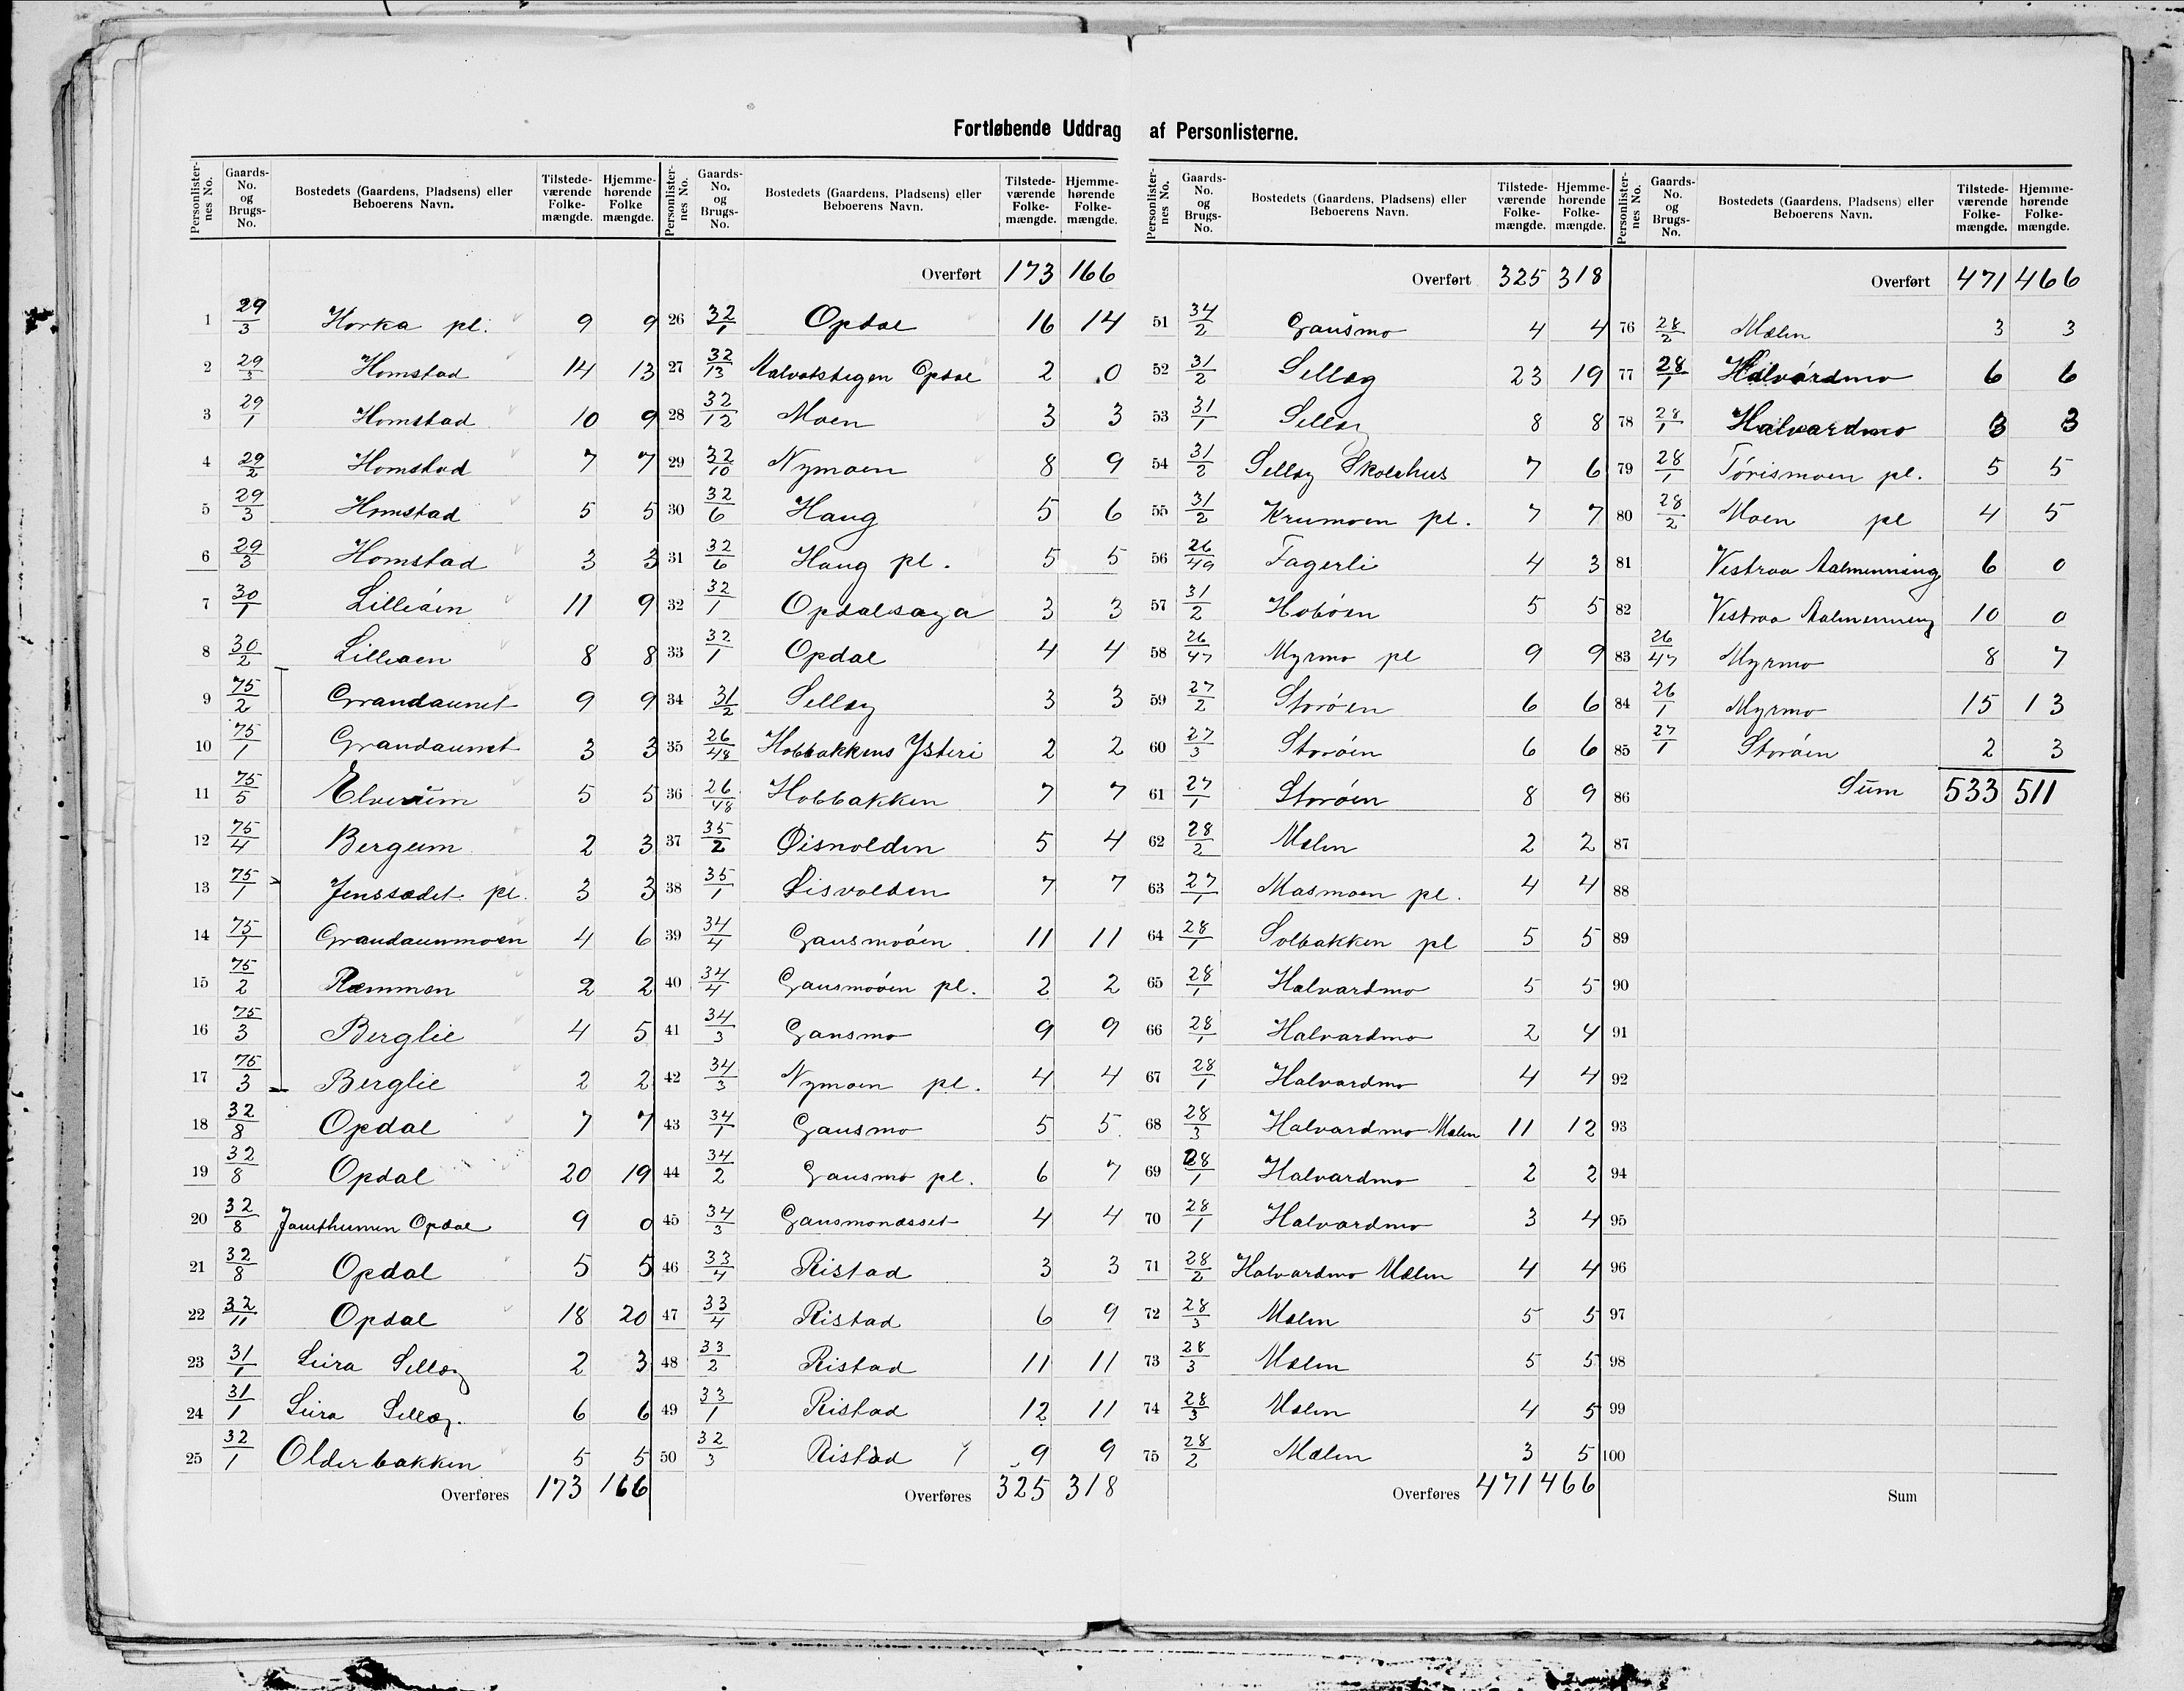 Fortløbende Uddrag af Personlisterne.
Personlister-nes No. Gaards-No. og Brugs-No. Bostedets (Gaardens, Pladsens) eller Beboerens Navn. Tilstede-værende Folke-mængde. Hjemme-hørende Folke mængde.
1 29/3 Horka pl. 9 9
2 29/3 Homstad 14 13
3 29/1 Homstad 10 9
4 29/2 Homstad 7 7
5 29/3 Homstad 5 5
6 29/3 Homstad 3 3
7 30/1 Lilleöen 11 9
8 30/2 Lilleöen 8 8
9 75/2 Grandaunet 9 9
10 75/1 Grandaunet 3 3
11 75/5 Elverum 5 5
12 75/4 Bergum 2 3
13 75/1 Jenssædet pl. 3 3
14 75/1 Grandaunmoen 4 6
15 75/2 Ræmmen 2 2
16 75/3 Berglie 4 5
17 75/3 Berglie 2 2
18 32/8 Opdal 7 7
19 32/8 Opdal 20 19
20 32/8 Opdal 9 0
21 32/8 Opdal 5 5
22 32/11 Opdal 18 20
23 31/1 Leira Selløy 2 3
24 31/1 Leira Selløy. 6 6
25 32/1 Olderbakken 5 5
Overføres 173 166
Personlister-nes No. Gaards-No. og Brugs-No. Bostedets (Gaardens, Pladsens) eller Beboerens Navn. Tilstede-værende Folke-mængde. Hjemme-hørende Folke-mængde.
Overført 173 166
26 32/1 Opdal 16 14
27 32/13 Opdal 2 0
28 32/12 Moen 3 3
29 32/10 Nymoen 8 9
30 32/6 Haug 5 6
31 32/6 Haug pl. 5 5
32 32/1 Opdalsaga 3 3
33 32/1 Opdal 4 4
34 31/2 Selløy 3 3
35 26/48 Hobbakkens Ysteri 2 2
36 26/48 Hobbakken 7 7
37 35/2 Øisvolden 5 4
38 35/1 Øisvolden 7 7
39 34/4 Gansmoöen 11 11
40 34/4 Gansmoöen pl. 2 2
41 34/3 Gansmo 9 9
42 34/3 Nymoen pl. 4 4
43 34/1 Gausmo 5 5
44 34/2 Gausmo pl. 6 7
45 34/3 Gausmonæsset 4 4
46 33/4 Ristad 3 3
47 33/4 Ristad 6 9
48 33/2 Ristad 11 11
49 33/1 Ristad 12 11
50 32/3 Ristad 9 9
Overføres 325 318
Personlister-nes No. Gaards-No. og Brugs-No. Bostedets (Gaardens, Pladsens) eller Beboerens Navn. Tilstede-værende Folke-mængde. Hjemme-hørende Folke-mængde.
Overført 325 318
51 34/2 Gausmo 4 4
52 31/2 Selløy 23 19
53 31/1 Selløy 8 8
54 31/2 Selløy Skolehus 7 6
55 31/2 Krumoen pl. 7 7
56 26/49 Fagerli 4 3
57 31/2 Hoböen 5 5
58 26/47 Myrmo pl 9 9
59 27/2 Storöen 6 6
60 27/3 Storöen 6 6
61 27/1 Storöen 8 9
62 28/2 Mælen 2 2
63 27/1 Masmoen pl. 4 4
64 28/1 Solbakken pl 5 5
65 28/1 Halvardmo 5 5
66 28/1 Halvardmo 2 4
67 28/1 Halvardmo 4 4
68 28/3 Halvardmo Mælen 11 12
69 28/1 Halvardmo 2 2
70 28/1 Halvardmo 3 4
71 28/2 Halvardmo Mælen 4 4
72 28/3 Mælen 5 5
73 28/3 Mælen 5 5
74 28/3 Mælen 4 5
75 28/2 Mælen 3 5
Overføres 471 466
Personlister-nes No. Gaards-No. og Brugs-No. Bostedets (Gaardens, Pladsens) eller Beboerens Navn. Tilstede-værende Folke-mængde. Hjemme-hørende Folke-mængde.
Overført 471 466
76 28/2 Mælen 3 3
77 28/1 Halvardmo 6 6
78 28/1 Halvardmo 3 3
79 28/1 Törismoen pl. 5 5
80 28/2 Moen pl 4 5
81 Vestraa Aalmenning 6 0
82 Vestraa Aalmenning 10 0
83 26/47 Myrmo 8 7
84 26/1 Myrmo 15 13
85 27/1 Storöen 2 3
86 Sum 533 511
87
88
89
90
91
92
93
94
95
96
97
98
99
100
Sum